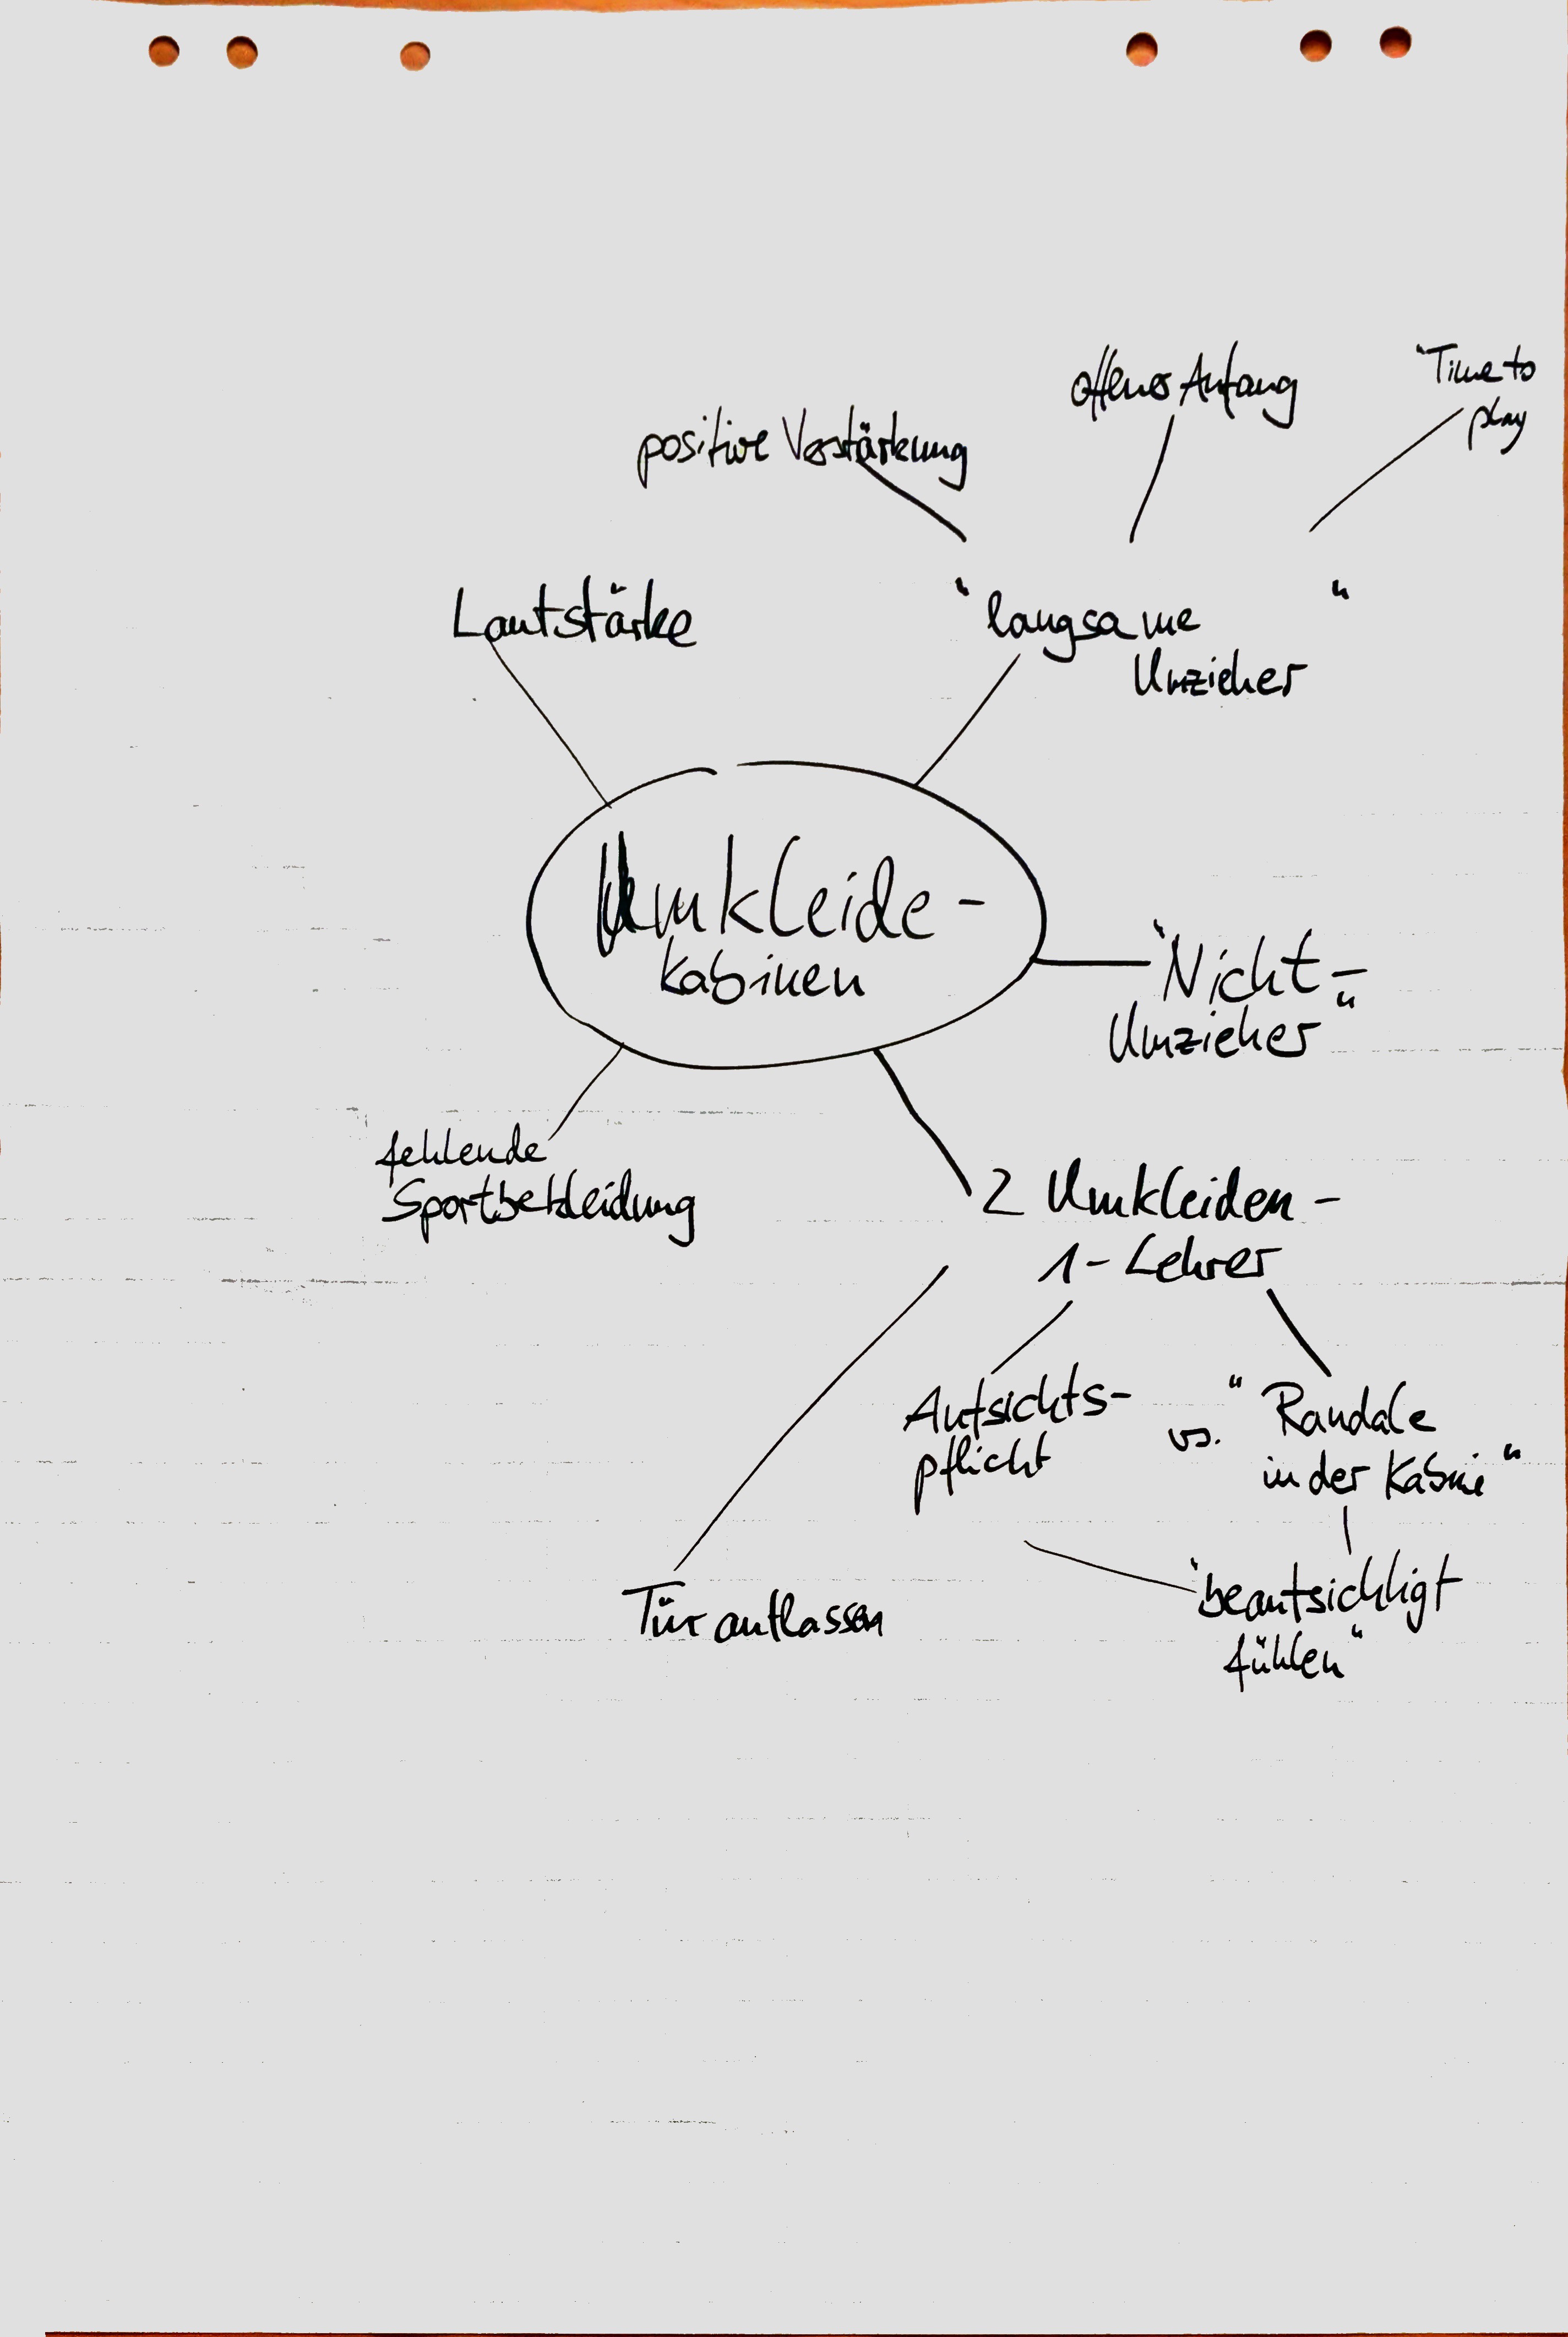 offener Anfang
"Time to
play
positive Verstärkung
Lautstärke
"langsame "
Umzieher
Umkleide-
kabinen
"Nicht-
Umzieher"
fehlende
Sportbekleidung
2 Umkleiden -
1 - Lehrer
Aufsichts-
pflicht
vs.
"Randale
in der Kabine"
Tür auflassen
"beaufsichtigt
fühlen"